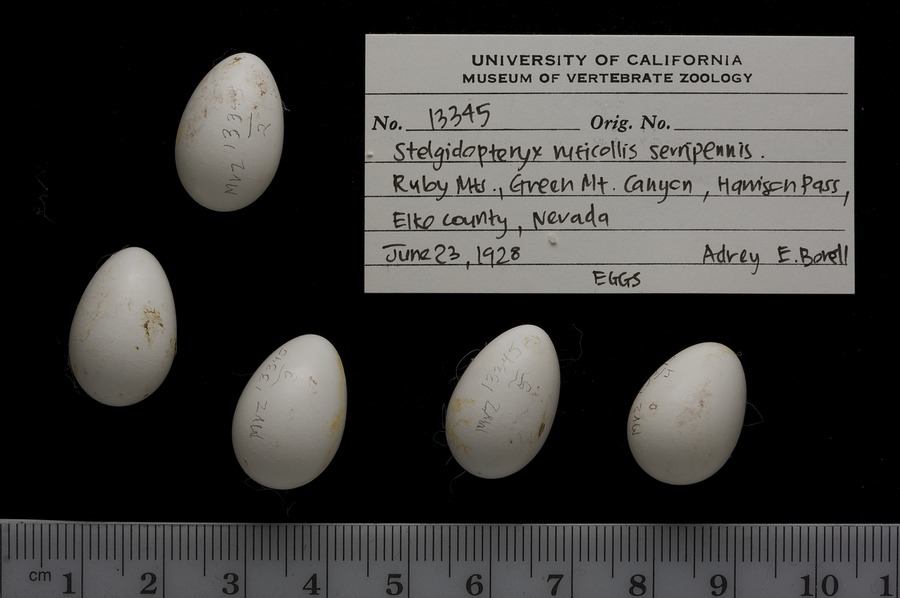 UNIVERSITY OF CALIFORNIA
MUSEUM OF VERTEBRATE ZOOLOGY
No. 13345 Orig. No.
Stelgidopteryx ruficollis serripennis.
Ruby Mts., Green Mt. Canyon, Harrison Pass,
Elko county, Nevada
June 23, 1928 Adrey E. Borell
EGGS
MVZ 13345
2
MVZ 13345
3
MVZ 13345
5
MVZ
4
cm 1 2 3 4 5 6 7 8 9 10 1